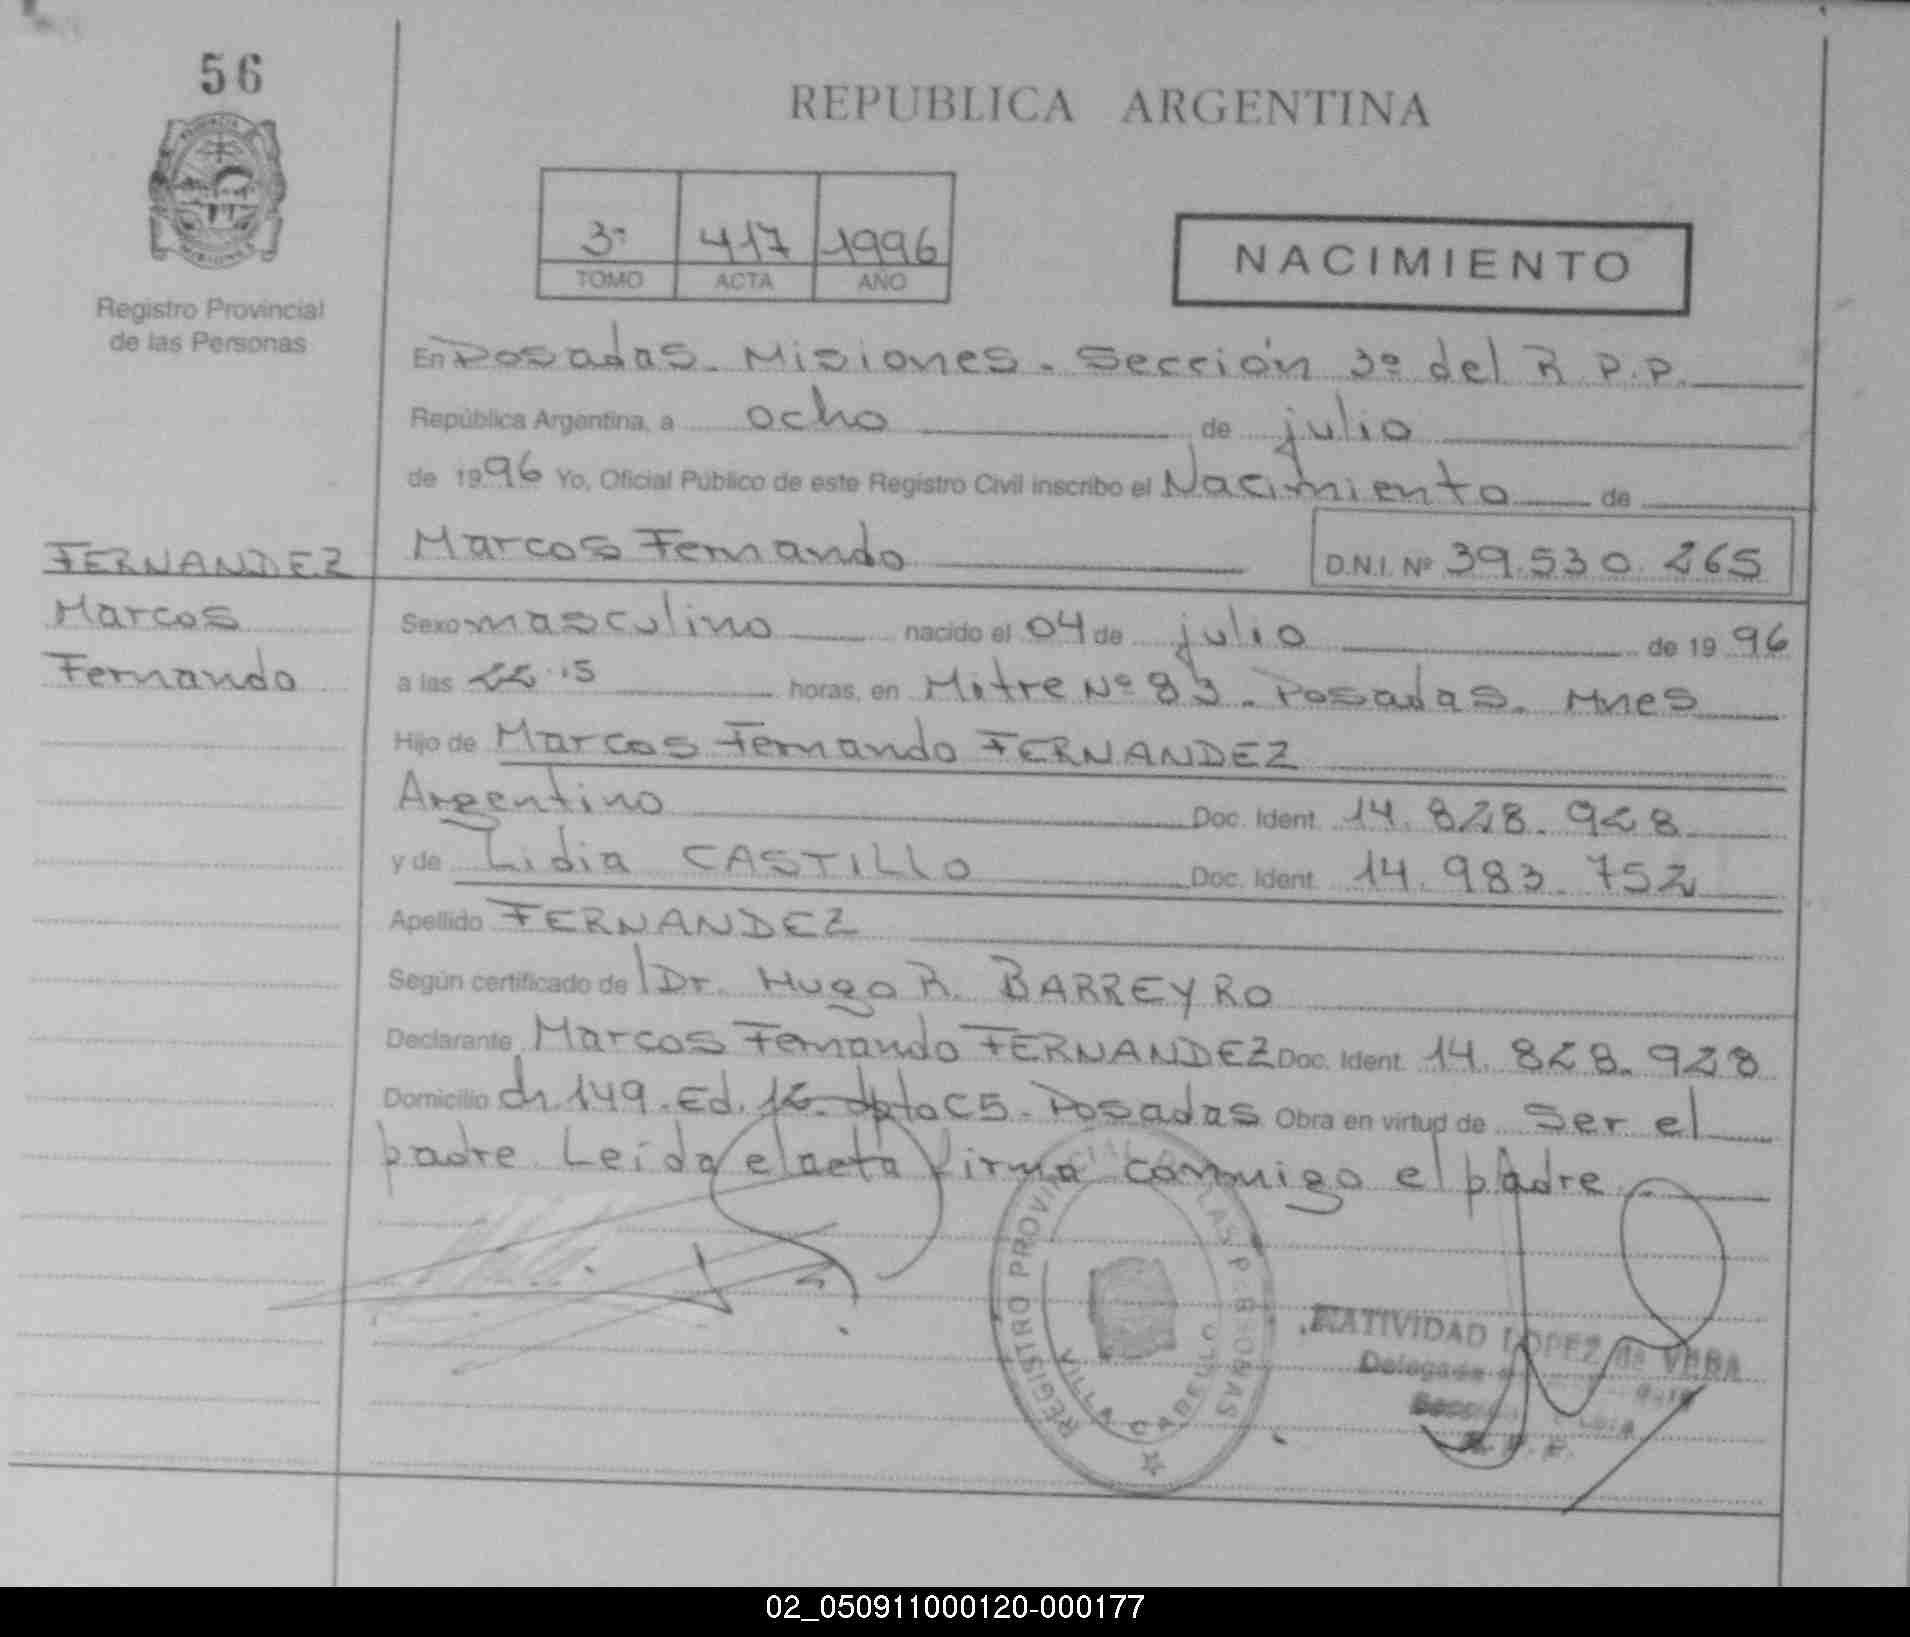 56
REPUBLICA ARGENTINA
3º 417 1996
TOMO ACTA AÑO
NACIMIENTO
Registro Provincial
de las Personas
En Posadas. Misiones. Sección 3º del R.P.P.
República Argentina, a ocho de julio
de 1996 Yo, Oficial Público de este Registro Civil inscribo el Nacimiento de
Marcos Fernando D.N.I. Nº 39.530.265
FERNANDEZ
Marcos
Fernando
Sexo masculino nacido el 04 de julio de 1996
a las 22.15 horas, en Mitre Nº 83. Posadas. Mnes
Hijo de Marcos Fernando FERNANDEZ
Argentino Doc. Ident. 14.828.928
y de Lidia CASTILLO Doc. Ident. 14.983.752
Apellido FERNANDEZ
Según certificado de Dr. Hugo R. BARREYRO
Declarante Marcos Fernando FERNANDEZ Doc. Ident. 14.828.928
Domicilio ch. 149. Ed. dpto C5. Posadas Obra en virtud de ser el
padre. Leída el acta firma conmigo el padre.
REGISTRO PROVINCIAL DE LAS PERSONAS
VILLA CABELLO
NATIVIDAD LOPEZ de VERA
Delegada
R.P.P.
02_050911000120-000177